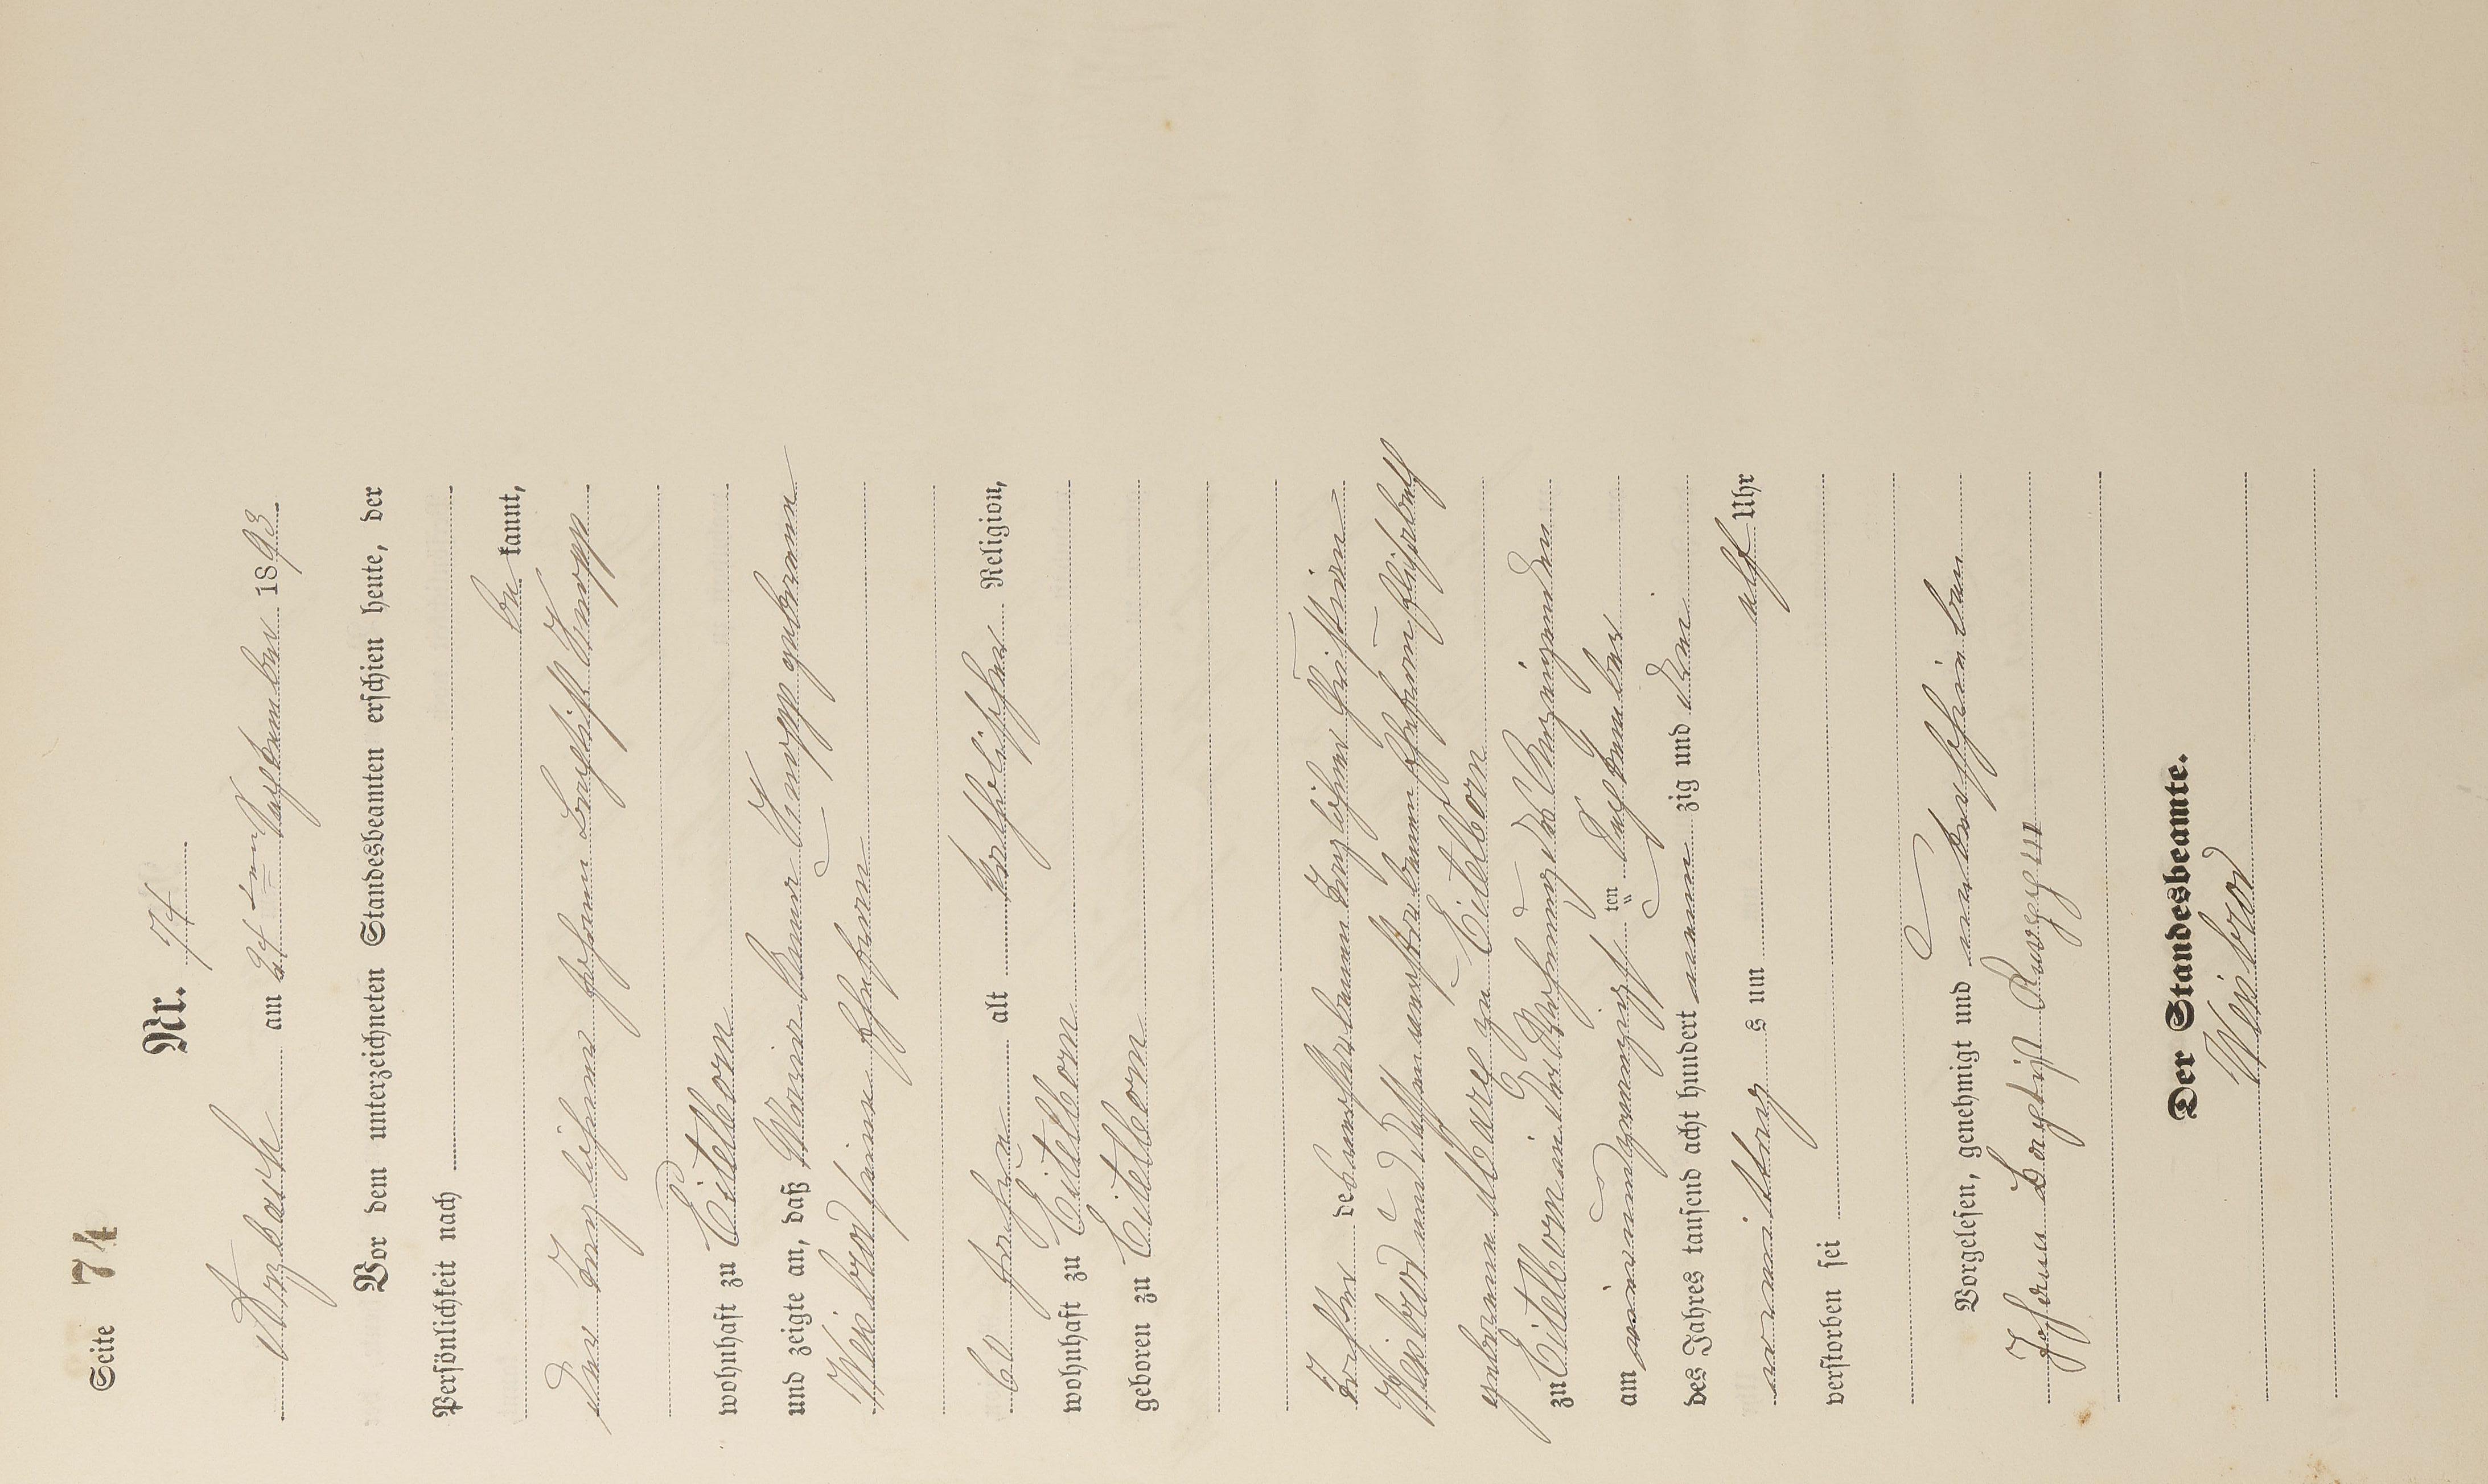 Seite 74
Nr. 74
Arzbach am 24ten September 1893.
Vor dem unterzeichneten Standesbeamten erschien heute, der
Persönlichkeit nach
be kannt,
der Taglöhner Johann Baptist Knopp
wohnhaft zu Eitelborn
und zeigte an, daß Maria Anna Knopp geborene
Weisbrod seine Ehefrau
60 Jahre alt katholischer Religion,
wohnhaft zu Eitelborn
geboren zu Eitelborn
Tochter des verstorbenen Taglöhner Christian
Weisbrod und dessen verstorbenen Ehefrau Elisabeth
geborene Marx zu Eitelborn
zu Eitelborn in der Wohnung des Anzeigenden
am vierundzwanzigsten September
des Jahres tausend acht hundert neun zig und drei
vormittag s um elf Uhr
verstorben sei
Vorgelesen, genehmigt und unterschrieben
Johann Baptist Knopp
Der Standesbeamte.
Weisbrod